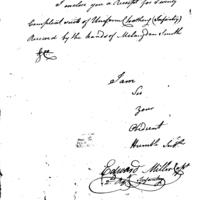 I inclose you a Receipt for Twenty
Compleat suits of Uniform Cloathing (Infantry)
Received by the hands of Melancton Smith
I am
Sir
your
Obedient
Humble Servt
Edward Miller Capt
2d Regt Infantry